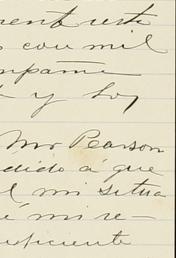 rente este
s con mil
mpaña
y hoy
Mr Pearson
dido á que
l mi situa
é mi re-
eficiente